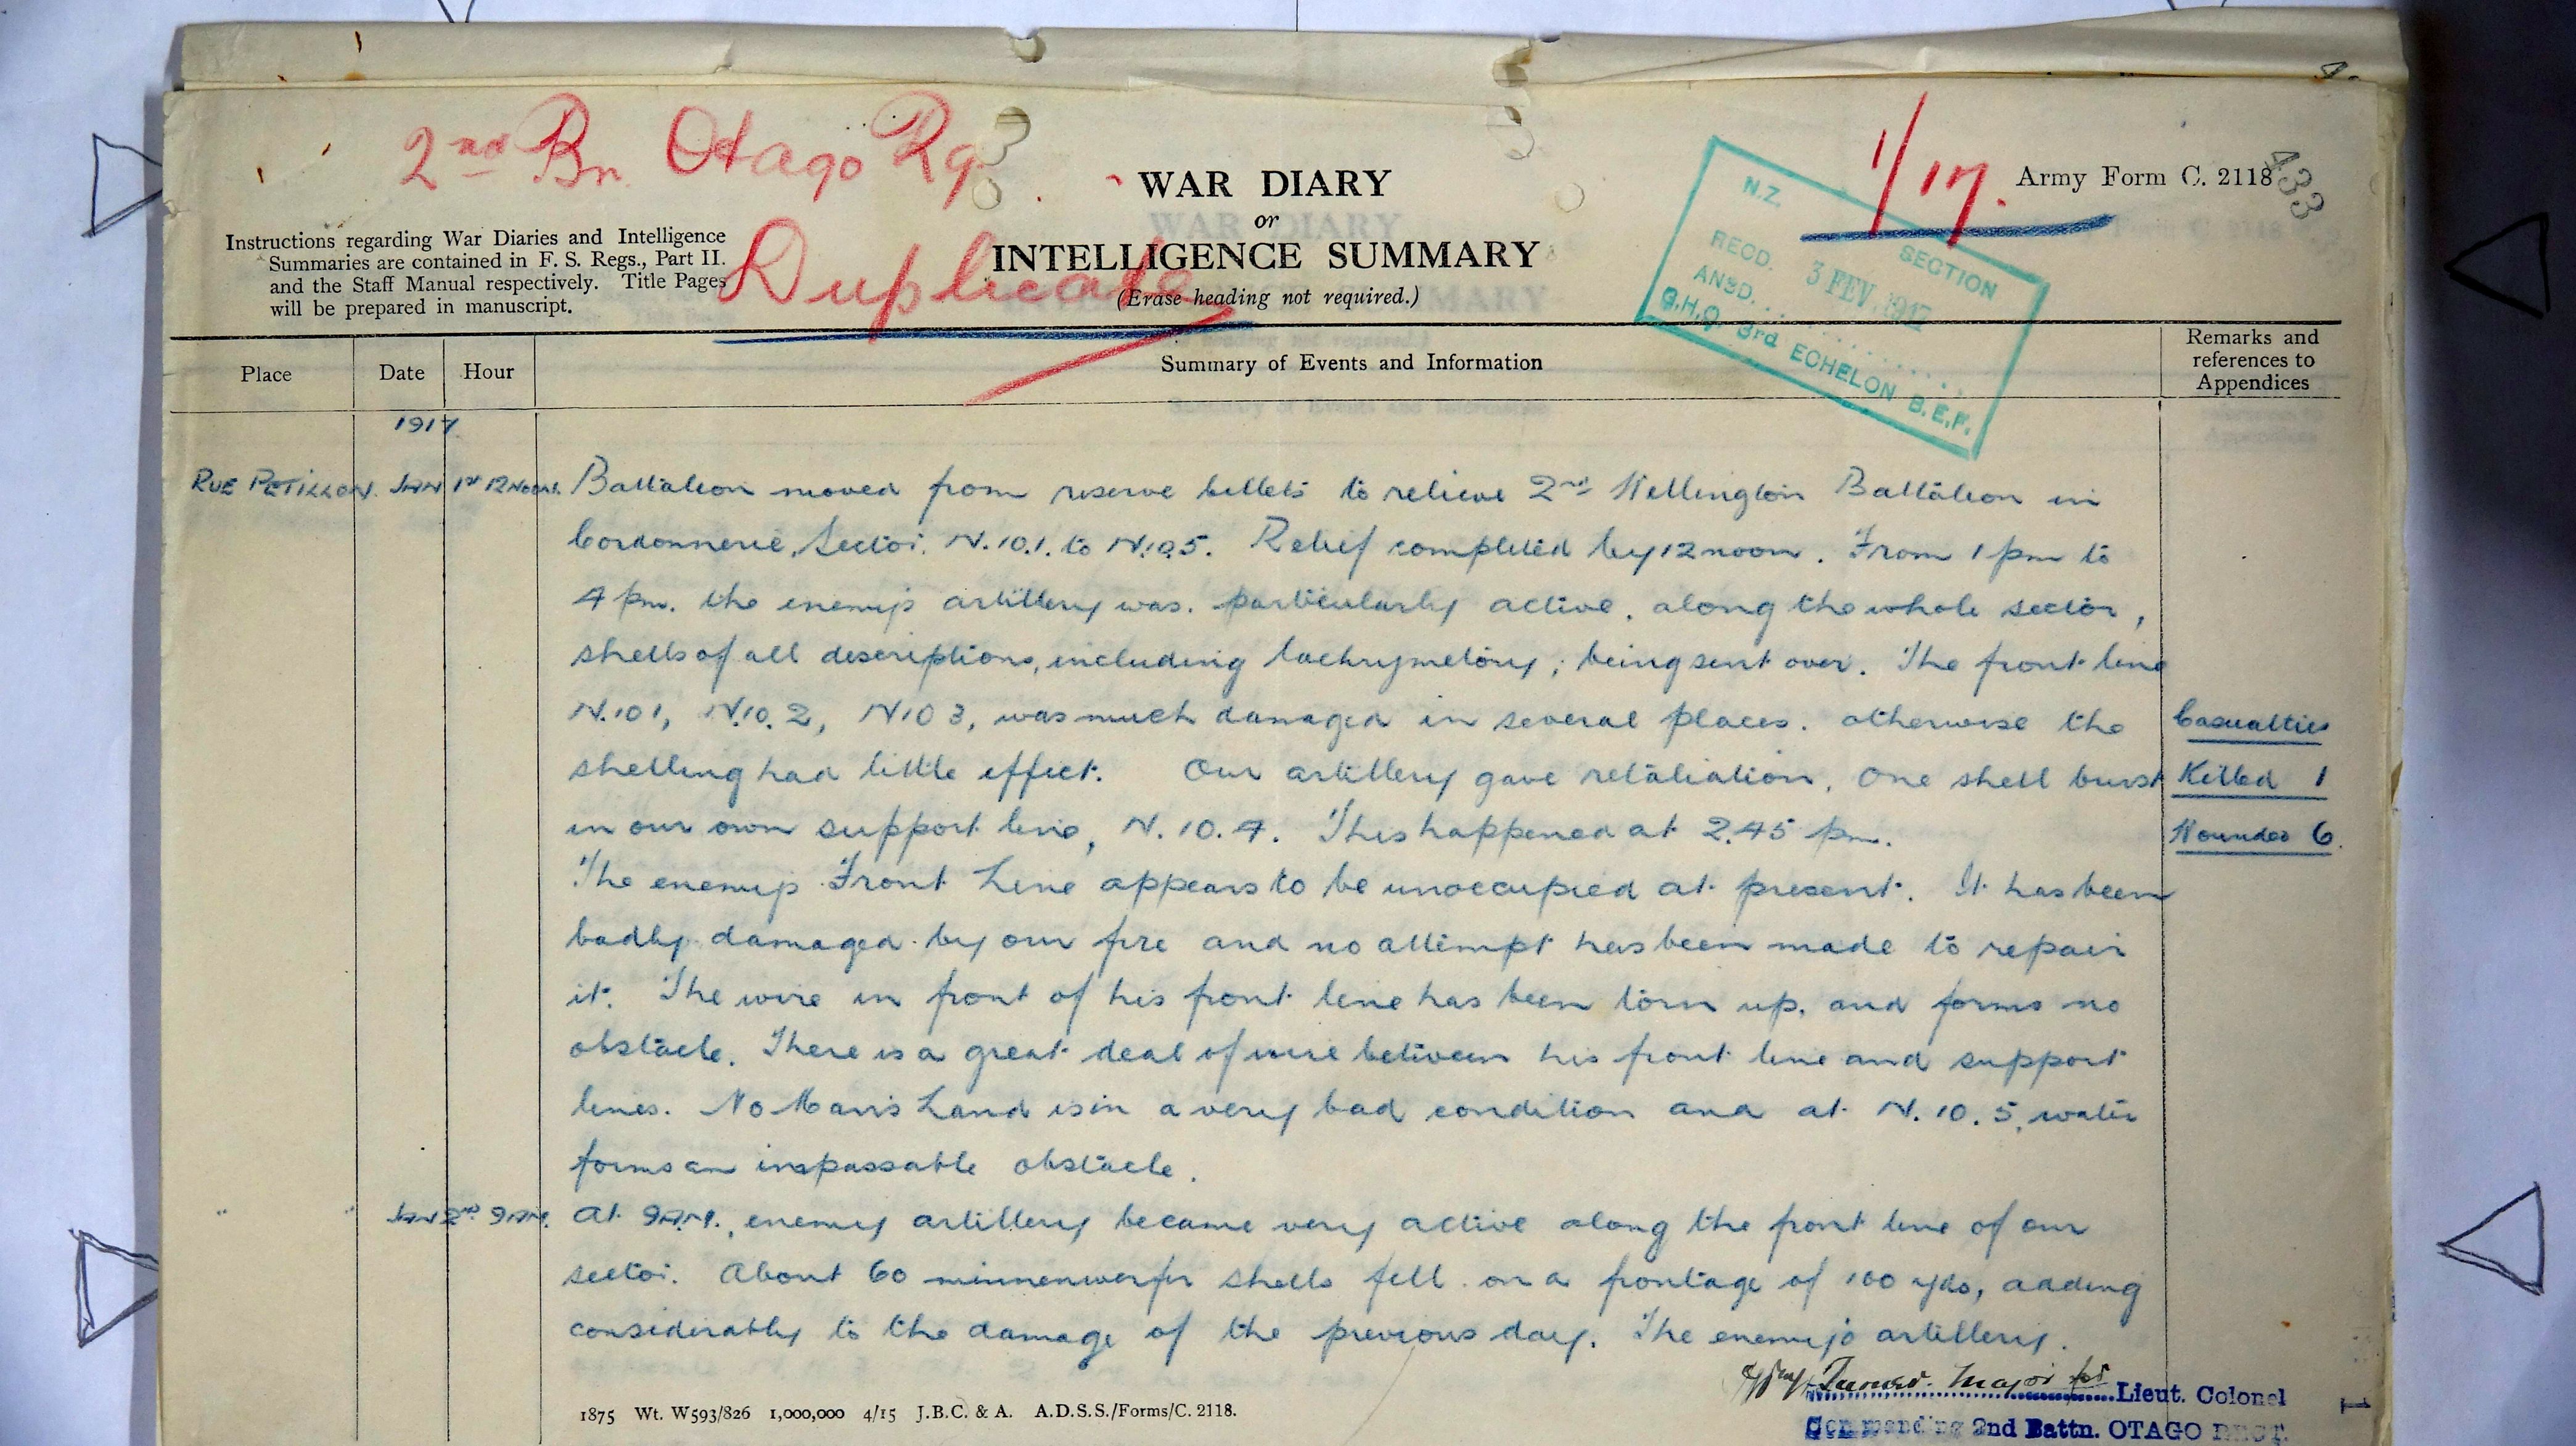 2nd Bn. Otago Rg
1/17.
Army Form C. 2118
433
WAR DIARY
or
INTELLIGENCE SUMMARY
(Erase heading not required.)
Instructions regarding War Diaries and Intelligence
Summaries are contained in F. S. Regs., Part II.
and the Staff Manual respectively. Title Pages
will be prepared in manuscript.
Duplicate
N.Z. SECTION
RECD. 3 FEV. 1917
ANSD.
G.H.Q. 3rd ECHELON B.E.F.
Place Date Hour Summary of Events and Information Remarks and
references to
Appendices
1917
RUE PETILLON. JAN 1st 12 NOON. Battalion moved from reserve billets to relieve 2nd Wellington Battalion in
Cordonnerie Sector. N.10.1. to N.10.5. Relief completed by 12 noon. From 1 pm to
4 pm. the enemy's artillery was. particularly active. along the whole sector,
shells of all descriptions, including lachrymetory; being sent over. The front line
N.10 1, N.10.2, N10 3, was much damaged in several places. otherwise the
Casualties
shelling had little effect. Our artillery gave retaliation. One shell burst
Killed 1
in our own support line, N.10.4. This happened at 2.45 pm.
Wounded 6.
The enemy's Front Line appears to be unoccupied at present. It has been
badly damaged by our fire and no attempt has been made to repair
it. The wire in front of his front line has been torn up, and forms no
obstacle. There is a great deal of wire between his front line and support
lines. No Man's Land is in a very bad condition and at N.10.5, water
forms an impassable obstacle.
" " JAN 2nd 9 AM. At 9 A.M., enemy artillery became very active along the front line of our
sector. About 60 minnenwerfer shells fell on a frontage of 100 yds, adding
considerably to the damage of the previous day. The enemy's artillery.
Major for
Lieut. Colonel
Commanding 2nd Battn. OTAGO REGT.
1875 Wt. W593/826 1,000,000 4/15 J.B.C. & A. A.D.S.S./Forms/C. 2118.